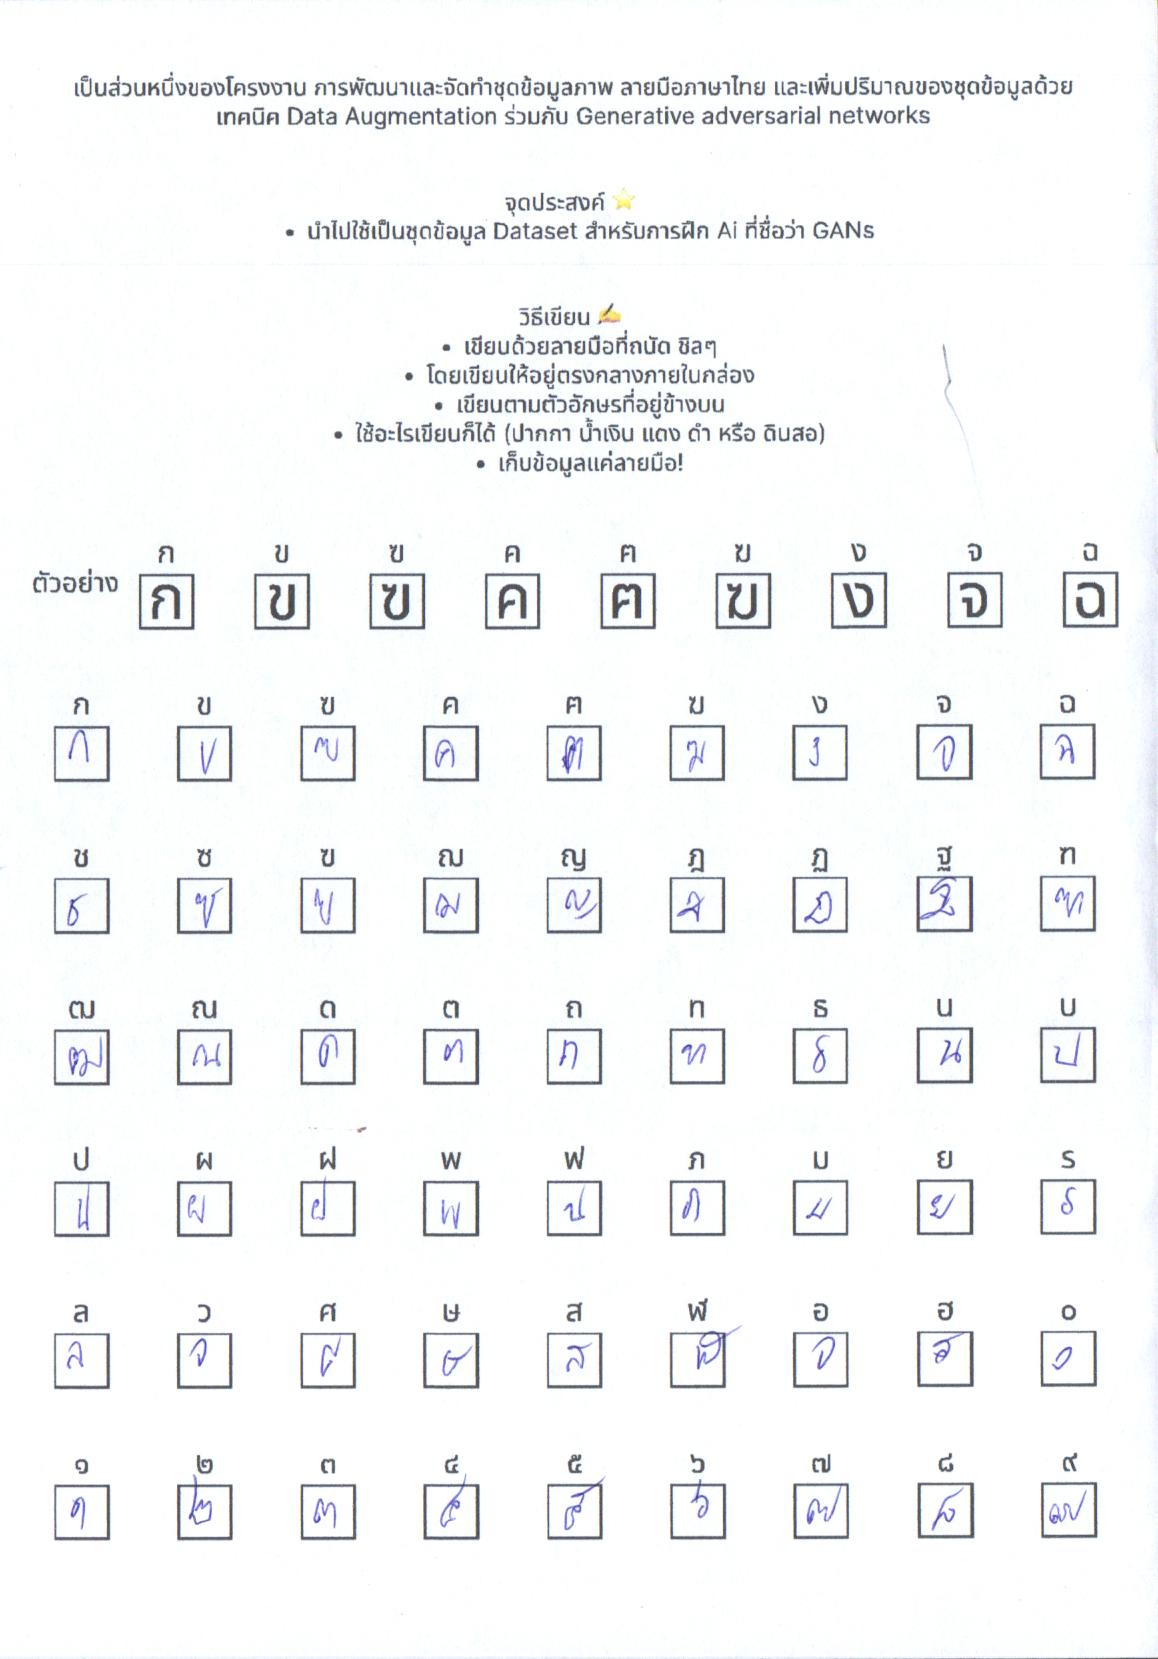 เป็นส่วนหนึ่งของโครงงาน การพัฒนาและจัดทำชุดข้อมูลภาพ ลายมือภาษาไทย และเพิ่มปริมาณของชุดข้อมูลด้วย
เทคนิค Data Augmentation ร่วมกับ Generative adversarial networks
จุดประสงค์ ⭐
• นำไปใช้เป็นชุดข้อมูล Dataset สำหรับการฝึก Ai ที่ชื่อว่า GANs
วิธีเขียน ✍
• เขียนด้วยลายมือที่ถนัด ชิลๆ
• โดยเขียนให้อยู่ตรงกลางภายในกล่อง
• เขียนตามตัวอักษรที่อยู่ข้างบน
• ใช้อะไรเขียนก็ได้ (ปากกา น้ำเงิน แดง ดำ หรือ ดินสอ)
• เก็บข้อมูลแค่ลายมือ!
ก ข ฃ ค ฅ ฆ ง จ ฉ
ตัวอย่าง ก ข ฃ ค ฅ ฆ ง จ ฉ
ก ข ฃ ค ฅ ฆ ง จ ฉ
ก ข ฃ ค ฅ ฆ ง จ ฉ
ช ซ ฃ ฌ ญ ฎ ฏ ฐ ฑ
ซ ฌ ญ ฎ ฏ ฐ ฑ
ฒ ณ ด ต ถ ท ธ น บ
ฒ ณ ด ต ถ ท ธ น บ
ป ผ ฝ พ ฟ ภ ม ย ร
ป ผ ฝ พ ฟ ภ ม ย ร
ล ว ศ ษ ส ฬ อ ฮ ๐
ล ว ศ ษ ส ฬ อ ฮ ๐
๑ ๒ ๓ ๔ ๕ ๖ ๗ ๘ ๙
๑ ๒ ๓ ๔ ๕ ๖ ๗ ๘ ๙